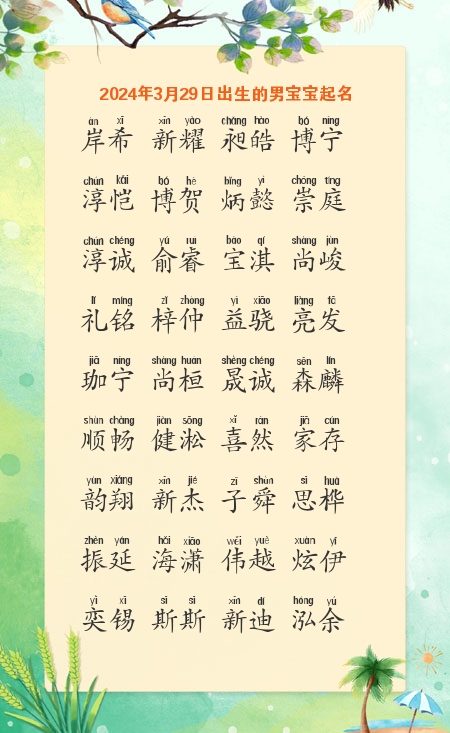 2024年3月29日出生的男宝宝起名
àn xī xīn yào chǎng hào bó níng
岸希 新耀 昶皓 博宁
chún kǎi bó hè bǐng yì chóng tíng
淳恺 博贺 炳懿 崇庭
chún chéng yú ruì bǎo qí shàng jùn
淳诚 俞睿 宝淇 尚峻
lǐ míng zǐ zhòng yì xiāo liàng fā
礼铭 梓仲 益骁 亮发
jiā níng shàng huán shèng chéng sēn lín
珈宁 尚桓 晟诚 森麟
shùn chàng jiàn sōng xǐ rán jiā cún
顺畅 健淞 喜然 家存
yùn xiáng xīn jié zǐ shùn sī huà
韵翔 新杰 子舜 思桦
zhèn yán hǎi xiāo wěi yuè xuàn yī
振延 海潇 伟越 炫伊
yì xī sī sī xīn dí hóng yú
奕锡 斯斯 新迪 泓余